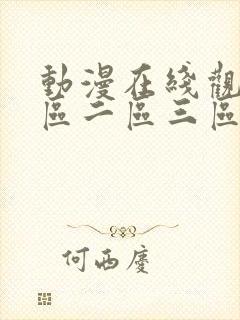 動漫在綫觀
區二區三區
何西慶